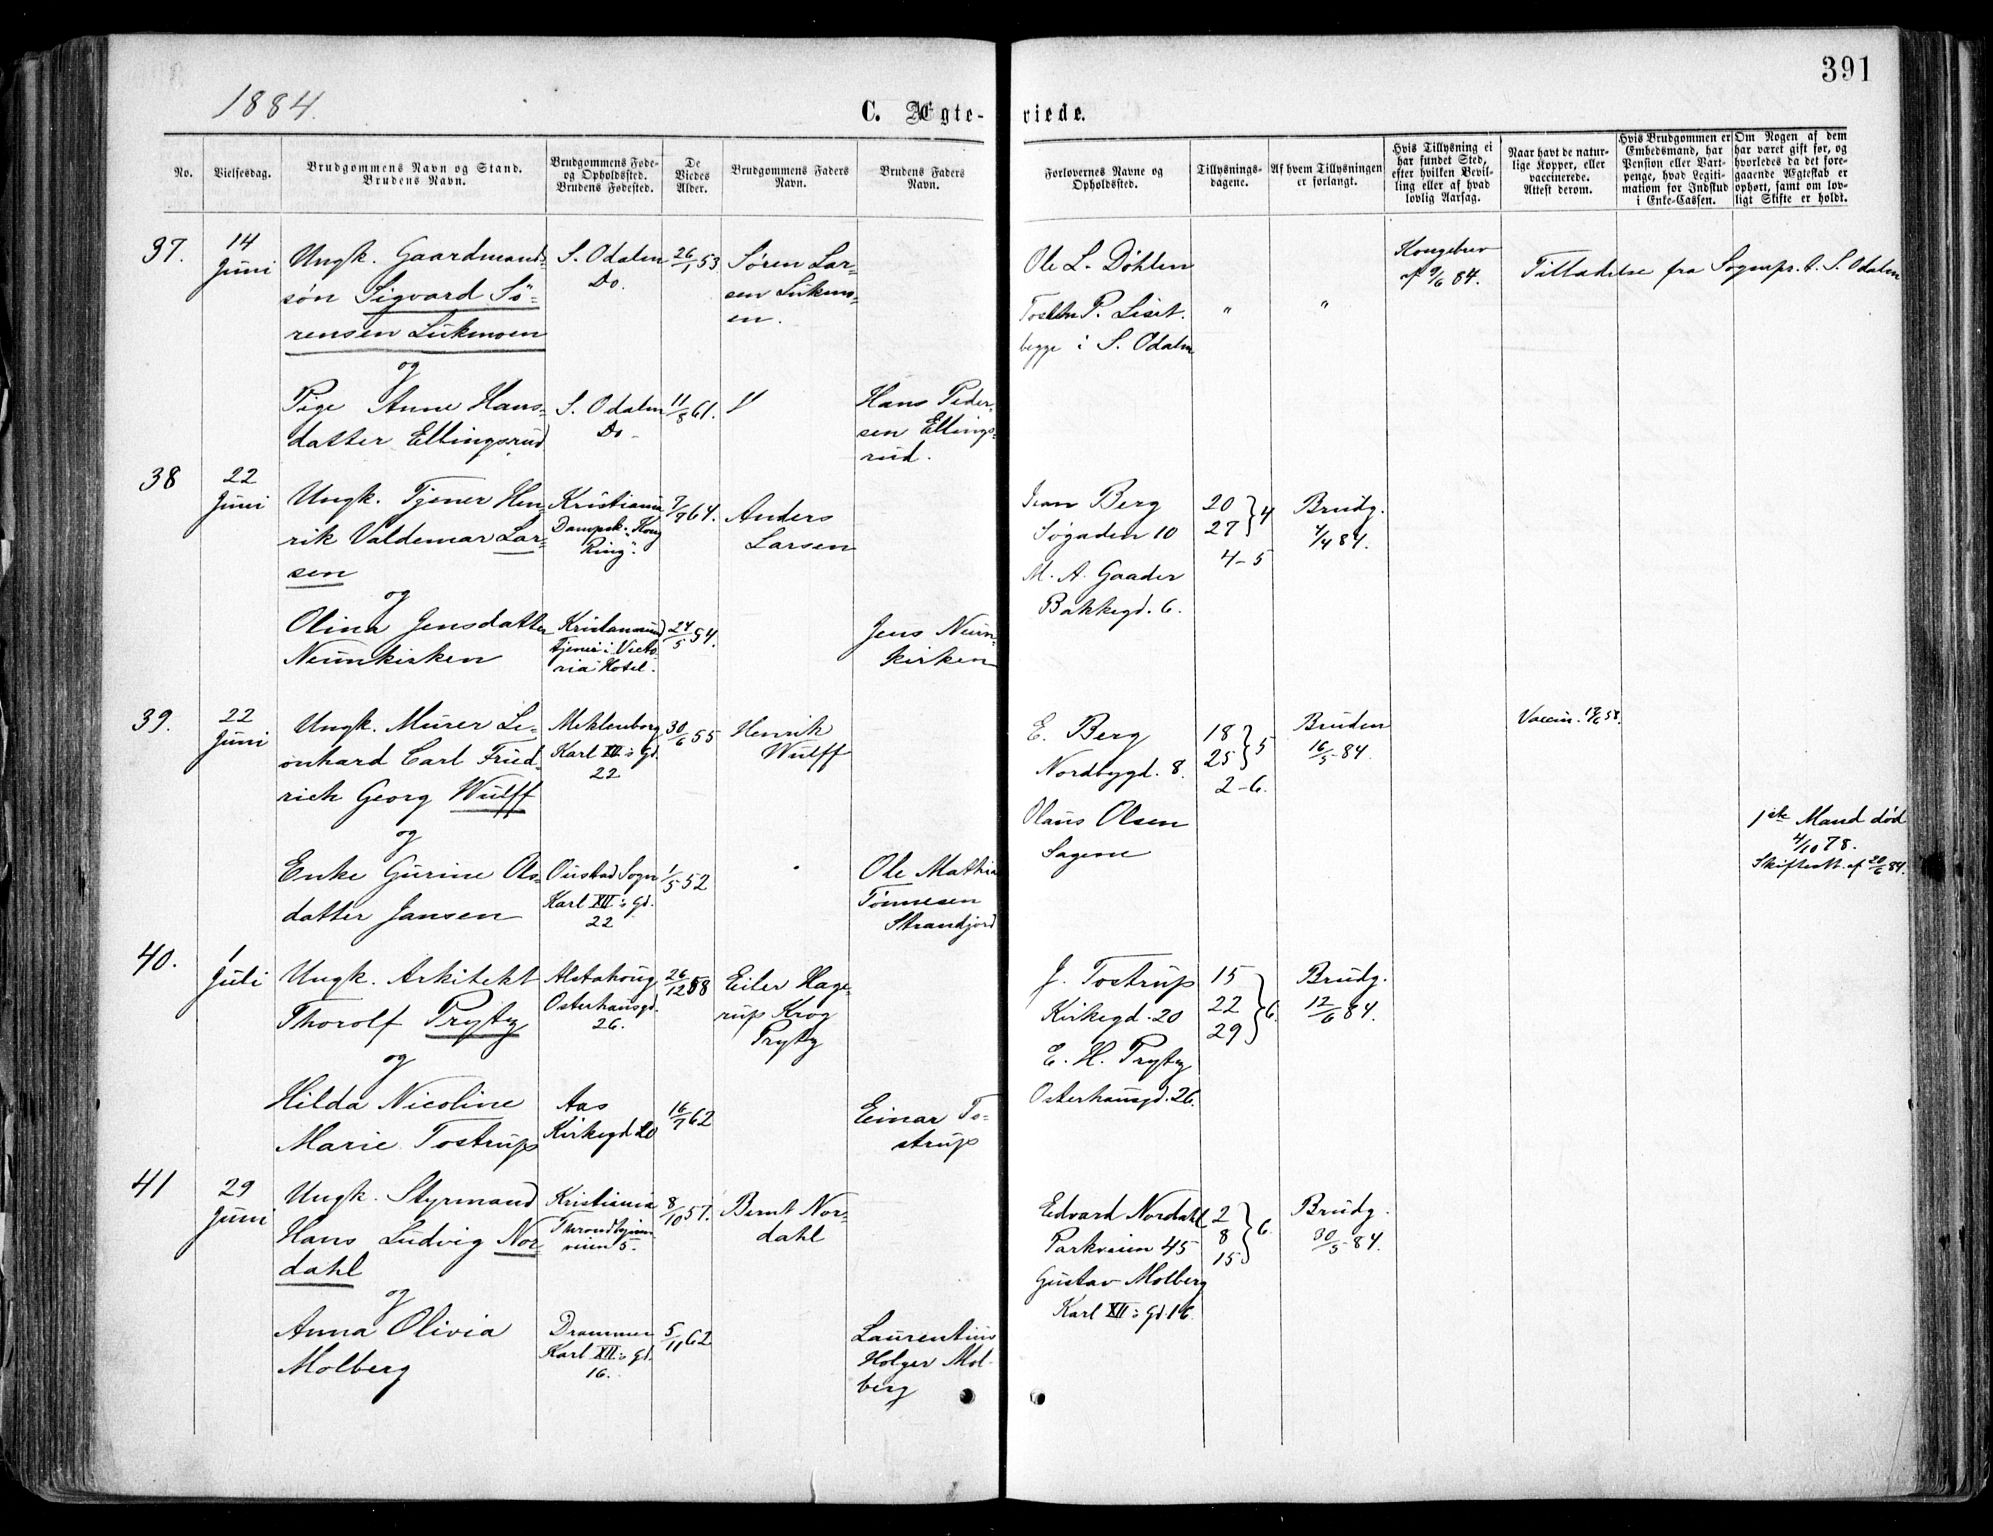 391
1884.
C. Ægte-viede.
No.
Vielsesdag.
Brudgommens Navn og Stand.
Brudens Navn.
Brudgommens Føde-
og Opholdssted.
Brudens Fødested.
De
Viedes
Alder.
Brudgommens Faders
Navn.
Brudens Faders
Navn.
Forlovernes Navne og
Opholdssted.
Tillysnings-
dagene.
Af hvem Tillysningen
er forlangt.
Hvis Tillysning ei
har fundet Sted,
efter hvilken Bevil-
ling eller af hvad
lovlig Aarsag.
Naar havt de natur-
lige Kopper, eller
vaccinerede.
Attest derom.
Hvis Brudgommen er
Embedsmand, har
Pension eller Vart-
penge, hvad Legiti-
mation for Indskud
i Enke-Cassen.
Om Nogen af dem
har været gift før, og
hvorledes da det fore-
gaaende Ægteskab er
ophørt, samt om lov-
ligt Skifte er holdt.
37.
14
Juni
Ungk. Gaardmands-
søn Sigvard Sö-
rensen Lükmoen
og
Pige Anne Hans-
datter Ellingsrud
S. Odalen
Do.
S. Odalen
Do-
26/1 53
11/8 61.
Søren Lar-
sen Lükmo-
en.
Hans Peder-
sen Ellings-
rud.
Ole L. Døhlen
P. Liset.
begge i S. Odalen
"
"
Kongebrev
af 9/6 84.
Tilladelse fra Sognepr. t. S. Odalen
38
22
Juni
Ungk. Tjener Hen-
rik Valdemar Lar-
sen
og
Olina Jensdatter
Neunkirken
Kristiania
Dampsk. "Kong
Ring".
Kristiansund
Tjener i Victo-
ria Hotel.
7/7 64.
24/5 54.
Anders
Larsen
Jens Neun-
kirken
Berg
Søgaden 10
M. A. Gaader
Bakkegd. 6.
20
27 } 4
4-5
Brudg.
4/4 84.
39.
22
Juni
Ungk. Murer Le-
onhard Carl Fried-
rich Georg Wulff
og
Enke Gurine Ols-
datter Jansen
Meklenborg
Karl XII's Gd.
22
Sogn
Karl XII's Gd.
22
30/6 55
1/5 52
Henrik
Wulff
Ole Mathia
Tønnesen
Strandjord
E. Berg
Nordbygd. 8.
Olaus Olsen
Sagene
18
25 } 5
2-6.
Bruden
16/5 84.
Vaccin.
1ste Mand død
4/10 78.
Skifteatt. af 20/6 84.
40.
1
Juli
Ungk. Arkitekt
Thorolf Prytz
og
Hilda Nicoline
Marie Tostrup
Alstahoug
Osterhausgd.
26.
Aas
Kirkegd 20
26/12 58
16/7 62
Eiler Hage-
rup Krog
Prytz
Einar To-
strup
J. Tostrup
Kirkegd. 20
E. H. Prytz
Osterhausgd. 26.
15
22 } 6.
29
Brudg.
12/6 84.
41
29
Juni
Ungk. Styrmand
Hans Ludvig Nor-
dahl
og
Anna Olivia
Molberg
Kristiania
Throndhjem-
veien 5.
Drammen
Karl XII's Gd.
16.
8/10 57.
5/11 62
Bernt Nor-
dahl
Laurentius
Holger Mol-
berg
Edvard Nordahl
Parkveien 45
Gustav Molberg
Karl XII's Gd. 16
2
8 } 6.
15
Brudg.
30/5 84.